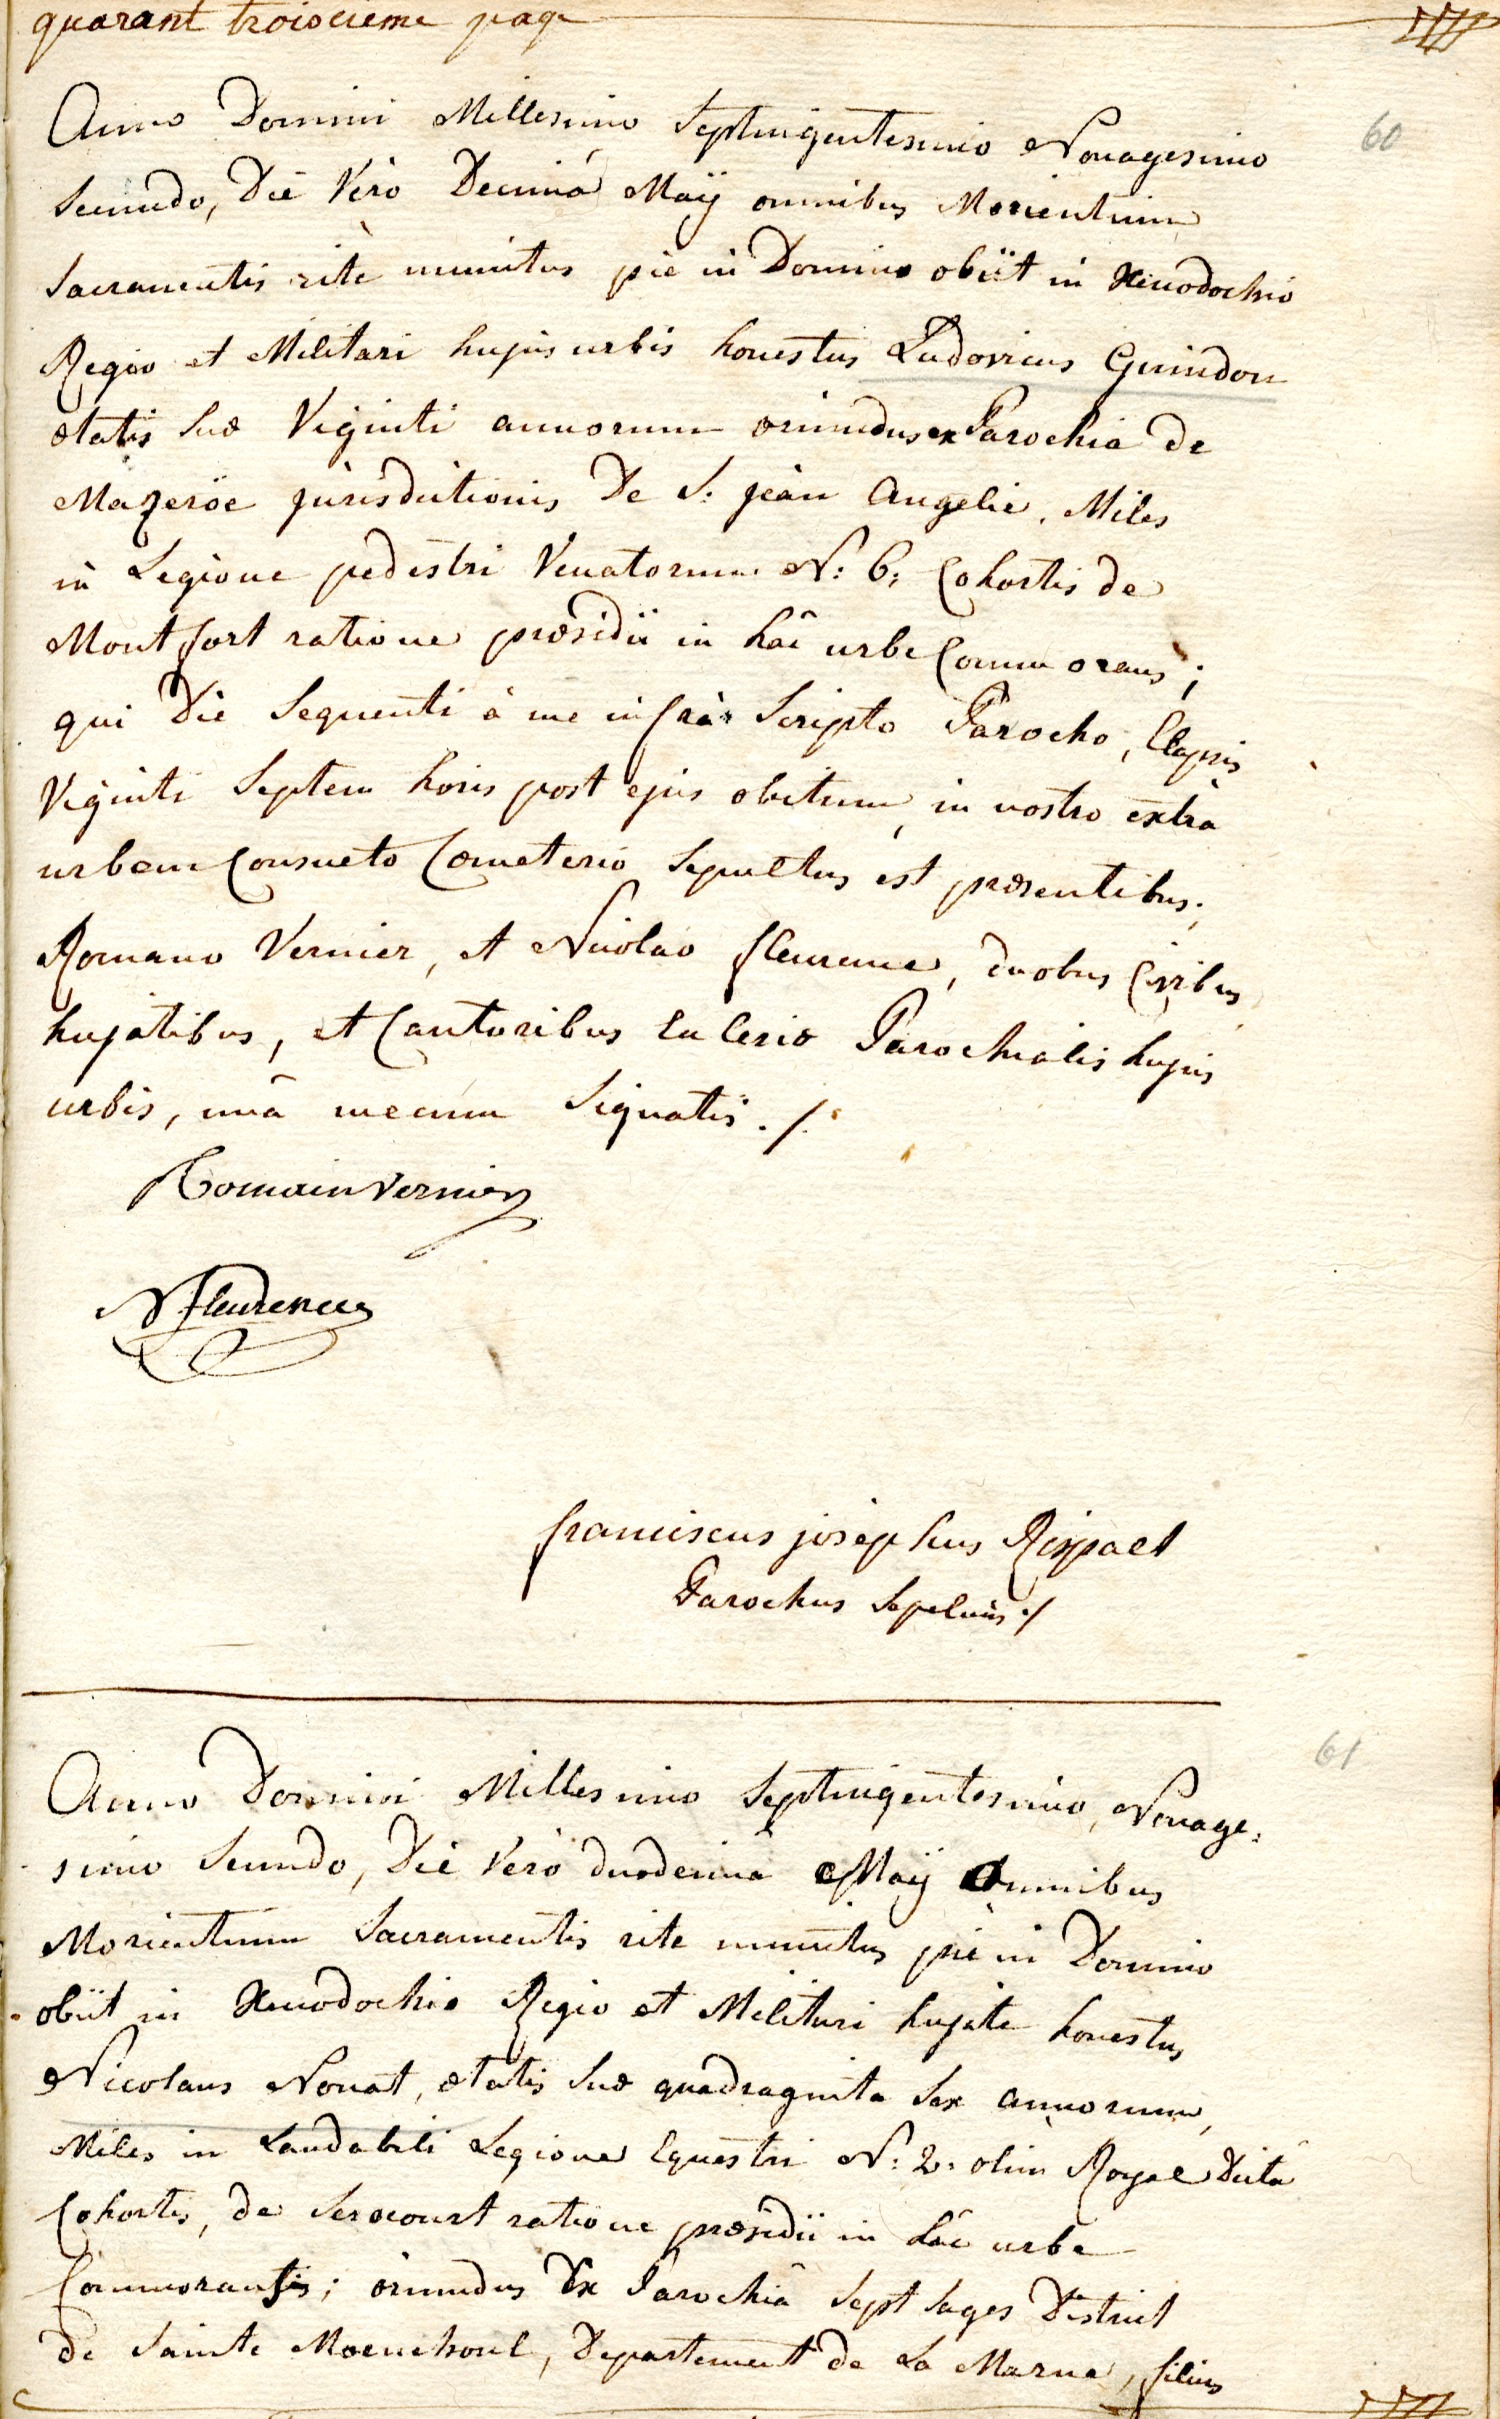 quarant troisieme page
60
Anno Domini Millesimo Septingentesimo Nonagesimo
Secundo, Die Vero Decimâ Maÿ omnibus Morientium
Sacramentis ritè munitus piè in Domino obiit in Xenodochio
Regio et Militari hujus urbis honestus Ludovicus Guindon
ætatis suæ Viginti annorum oriundus ex Parochia de
Mazeröe jurisdictionis De S: jean Angelie, Miles
in Legione pedestri Venatorum N: 6: Cohortis de
Montfort ratione præsidii in hâc urbe Commorans;
qui Die Sequenti à me infrà Scripto Parocho, Elapsis
Viginti Septem horis post ejus obitum, in nostro extrà
urbem Consueto Cœmeterio Sepultus est præsentibus,
Romano Vernier, et Nicolao fleurence, duobus Civibus
hujatibus, et Cantoribus Ecclesiæ Parochialis hujus
urbis, unâ mecum Signatis ./.
Romain vernier
N fleurence
franciscus josephus Rispael
Parochus Sepeliens ./
61
Anno Domini Millesimo Septingentesimo, Nonage:
simo Secundo, Diè Verò duodecimâ Maÿ Omnibus
Morientium Sacramentis rite munitus piè in Domino
obiit in Xenodochio Regio et Militari hujate honestus
Nicolaus Nonat, ætatis suæ quadraginta Sex annorum,
Miles in Laudabili Legione Equestri N: 2: olim Royal Dicta
Cohortis, de Serocourt ratione præsidii in hâc urbe
Commorantis; oriundus Ex Parochiâ Sept Sages District
de Sainte Moenehoul, Departement de La Marne, filius